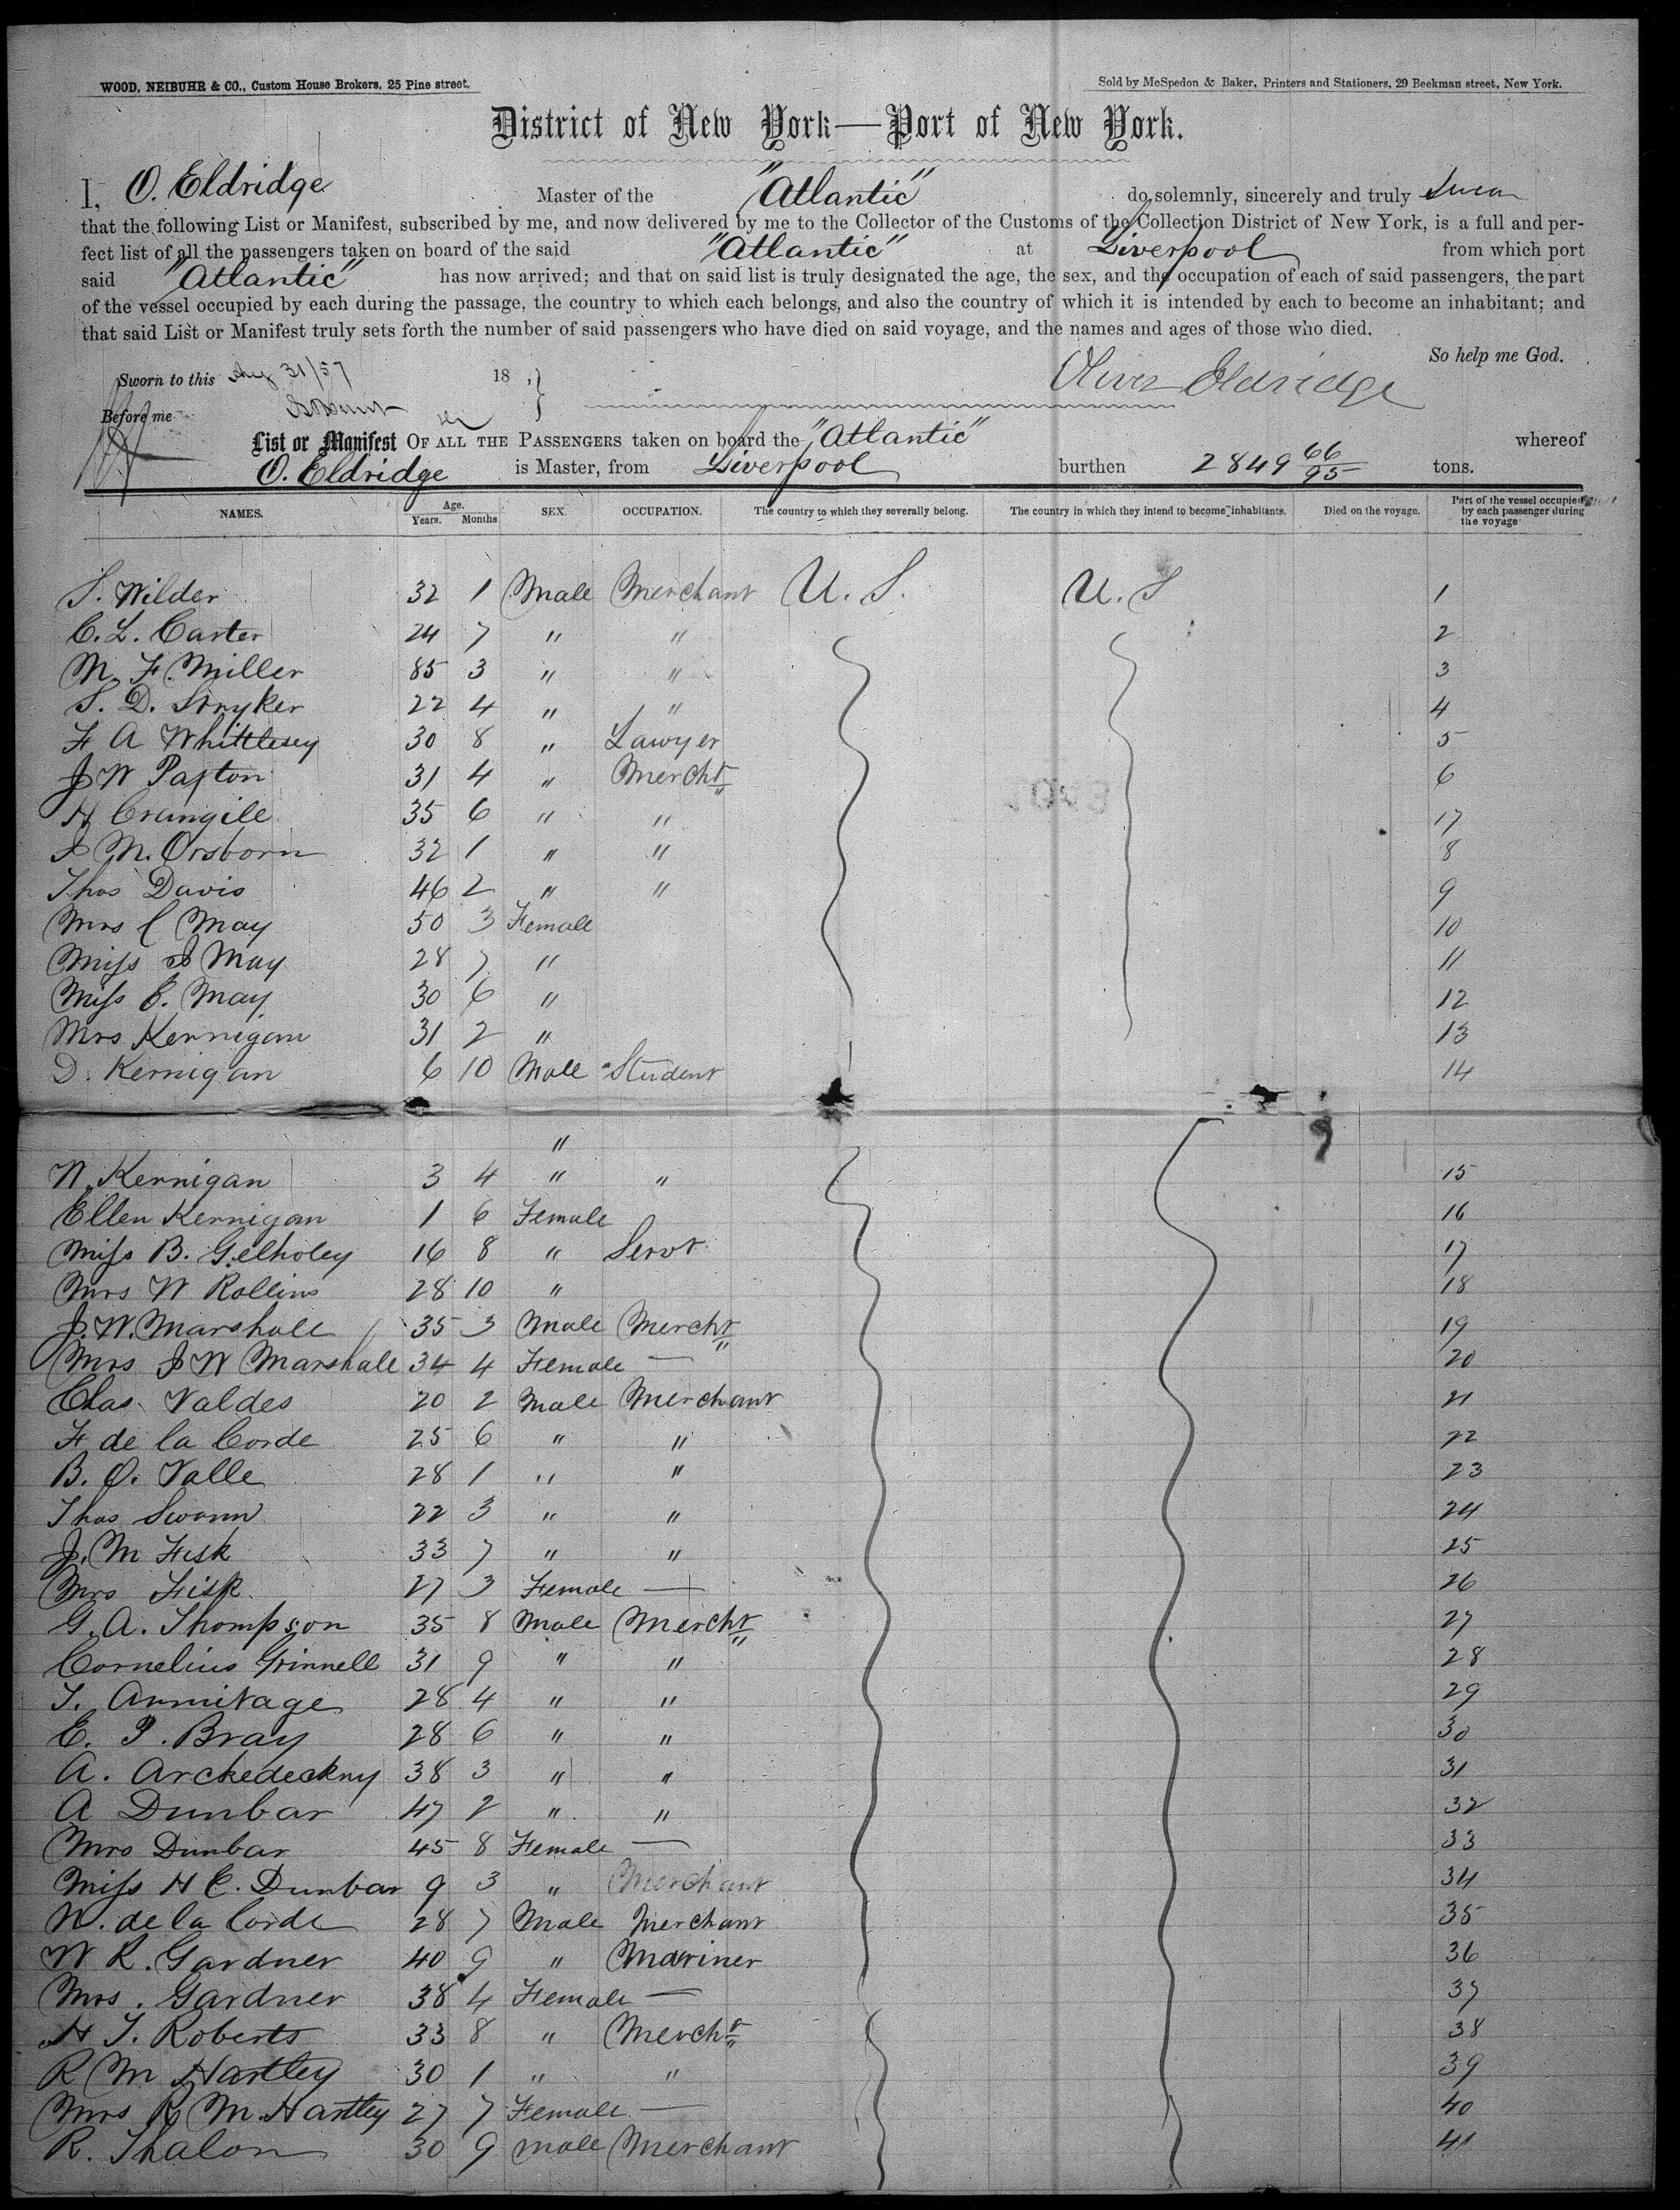 WOOD, NEIBUHR & CO., Custom House Brokers, 25 Pine street.
Sold by McSpedon & Baker, Printers and Stationers, 29 Beekman street, New York.
District of New York—Port of New York.
I, O. Eldridge Master of the "Atlantic" do solemnly, sincerely and truly Swear
that the following List or Manifest, subscribed by me, and now delivered by me to the Collector of the Customs of the Collection District of New York, is a full and per-
fect list of all the passengers taken on board of the said "Atlantic" at Liverpool from which port
said "Atlantic" has now arrived; and that on said list is truly designated the age, the sex, and the occupation of each of said passengers, the part
of the vessel occupied by each during the passage, the country to which each belongs, and also the country of which it is intended by each to become an inhabitant; and
that said List or Manifest truly sets forth the number of said passengers who have died on said voyage, and the names and ages of those who died.
So help me God.
Sworn to this Aug 31/57 18
Oliver Eldridge
Before me
List or Manifest OF ALL THE PASSENGERS taken on board the "Atlantic" whereof
O. Eldridge is Master, from Liverpool burthen 2849 66/95 tons.
NAMES. Age. Years. Months. SEX. OCCUPATION. The country to which they severally belong. The country in which they intend to become inhabitants. Died on the voyage. Part of the vessel occupied by each passenger during the voyage
S. Wilder 32 1 Male Merchant U. S. U. S 1
C. L. Carter 24 7 " " 2
M. F. Miller 85 3 " " 3
S. D. Stryker 22 4 " " 4
F A Whittlesey 30 8 " Lawyer 5
J W Paxton 31 4 " Mercht 6
H Crangile 35 6 " " 17
J M. Orsborn 32 1 " " 8
Thos Davis 46 2 " " 9
Mrs C May 50 3 Female 10
Miss J May 28 7 " 11
Miss E. May 30 6 " 12
Mrs Kernigan 31 2 " 13
D. Kernigan 6 10 Male Student 14
"
N. Kernigan 3 4 " " 15
Ellen Kernigan 1 6 Female 16
Miss B. Gelholey 16 8 " Servt 17
Mrs W Rollins 28 10 " 18
J. W. Marshall 35 3 Male Mercht 19
Mrs J W Marshall 34 4 Female — 20
Chas Valdes 20 2 Male Merchant 21
F de la Corde 25 6 " " 22
B. O. Valle 28 1 " " 23
Thos Swann 22 3 " " 24
J. M Fisk 33 7 " " 25
Mrs Fisk 27 3 Female — 26
G. A. Thompson 35 8 Male Mercht 27
Cornelius Grinnell 31 9 " " 28
T. Armitage 28 4 " " 29
E. P. Bray 28 6 " " 30
A. Archedeckny 38 3 " " 31
A Dunbar 47 2 " " 32
Mrs Dunbar 45 8 Female — 33
Miss H E. Dunbar 9 3 " Merchant 34
N. de la Corde 28 7 Male Merchant 35
W R. Gardner 40 9 " Mariner 36
Mrs. Gardner 38 4 Female — 37
H T. Roberts 33 8 " Mercht 38
R M Hartley 30 1 " " 39
Mrs R M. Hartley 27 7 Female — 40
R. Thalon 30 9 male Merchant 41